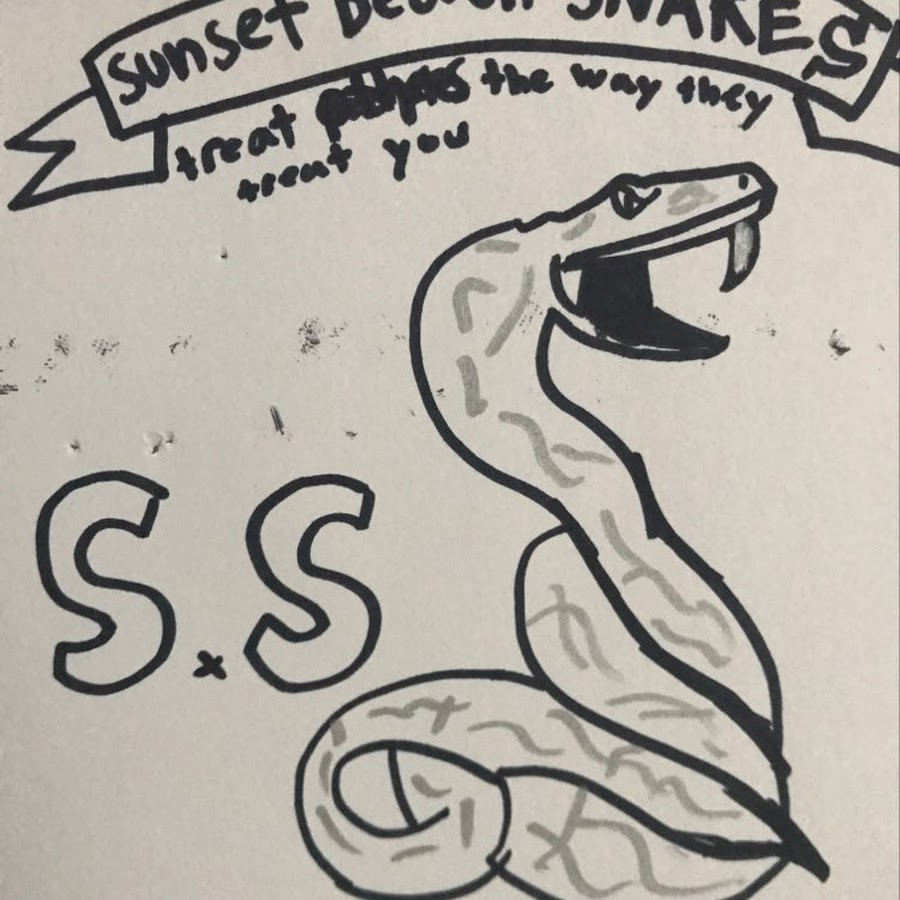 sunset SNAKES
treat the way they
treat you
S.S